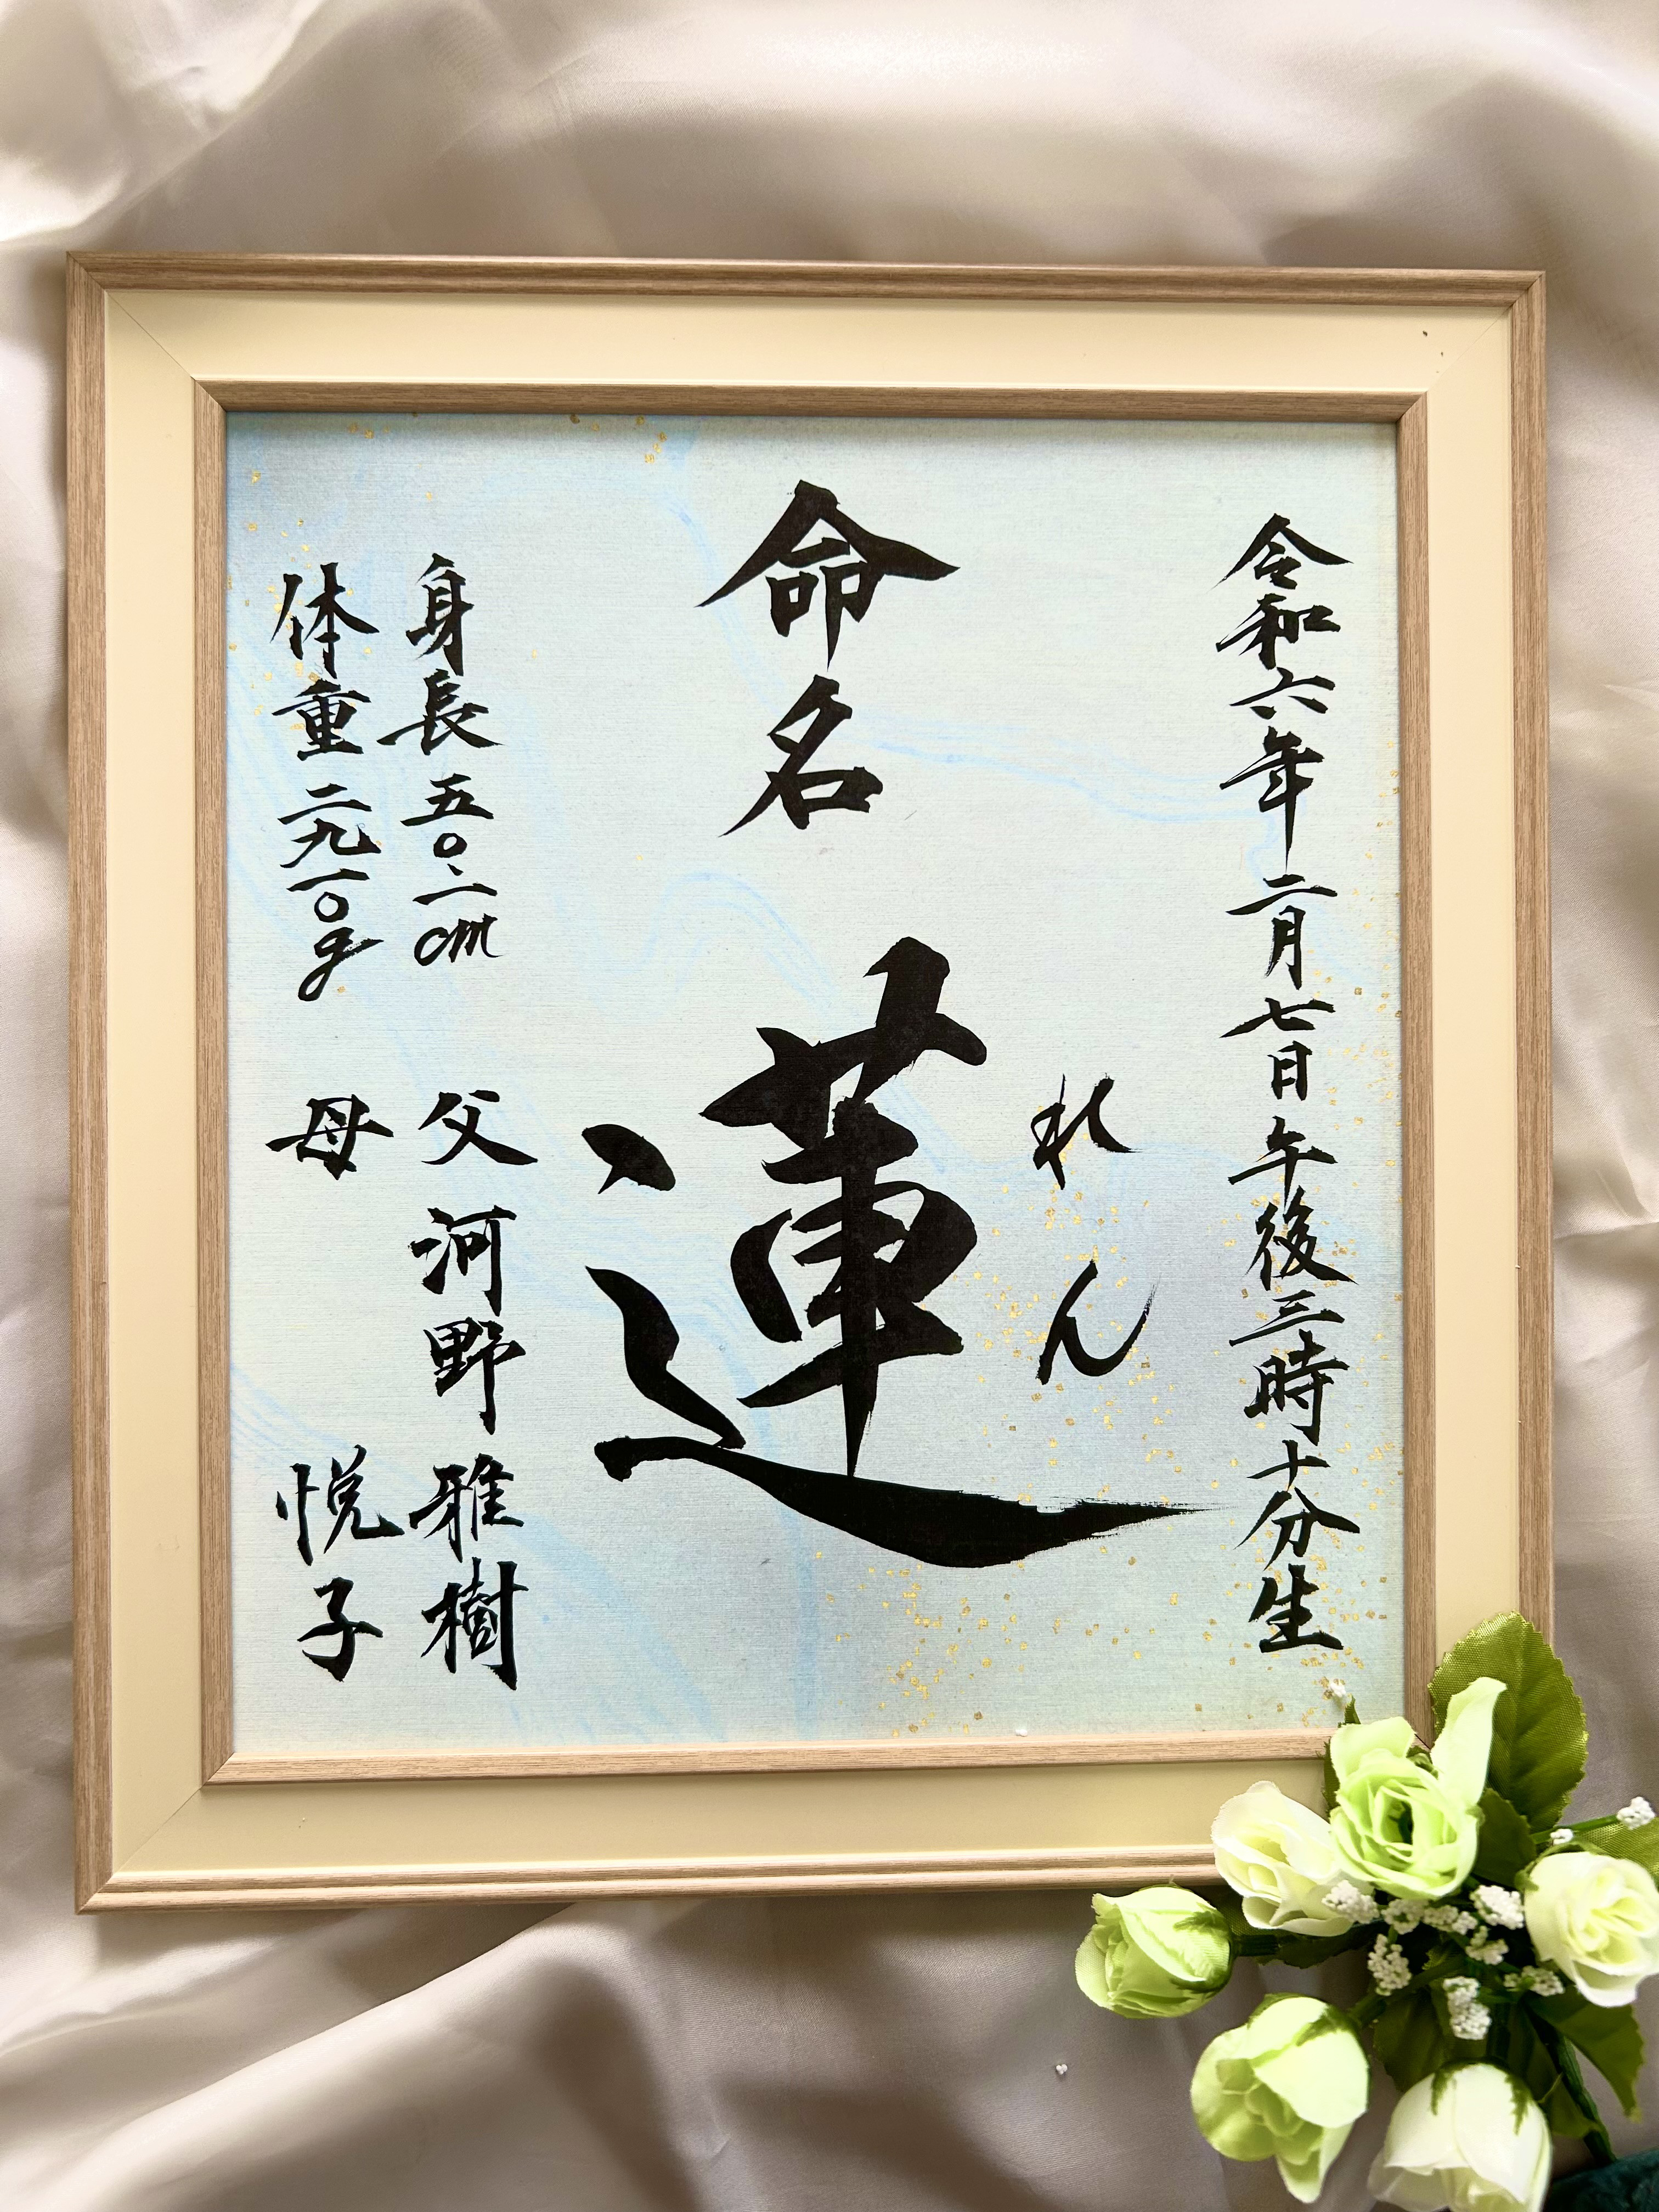 令和六年二月七日午後三時十分生
命名
れん
蓮
身長五〇.二cm
体重二九一〇g
父河野雅樹
母悦子